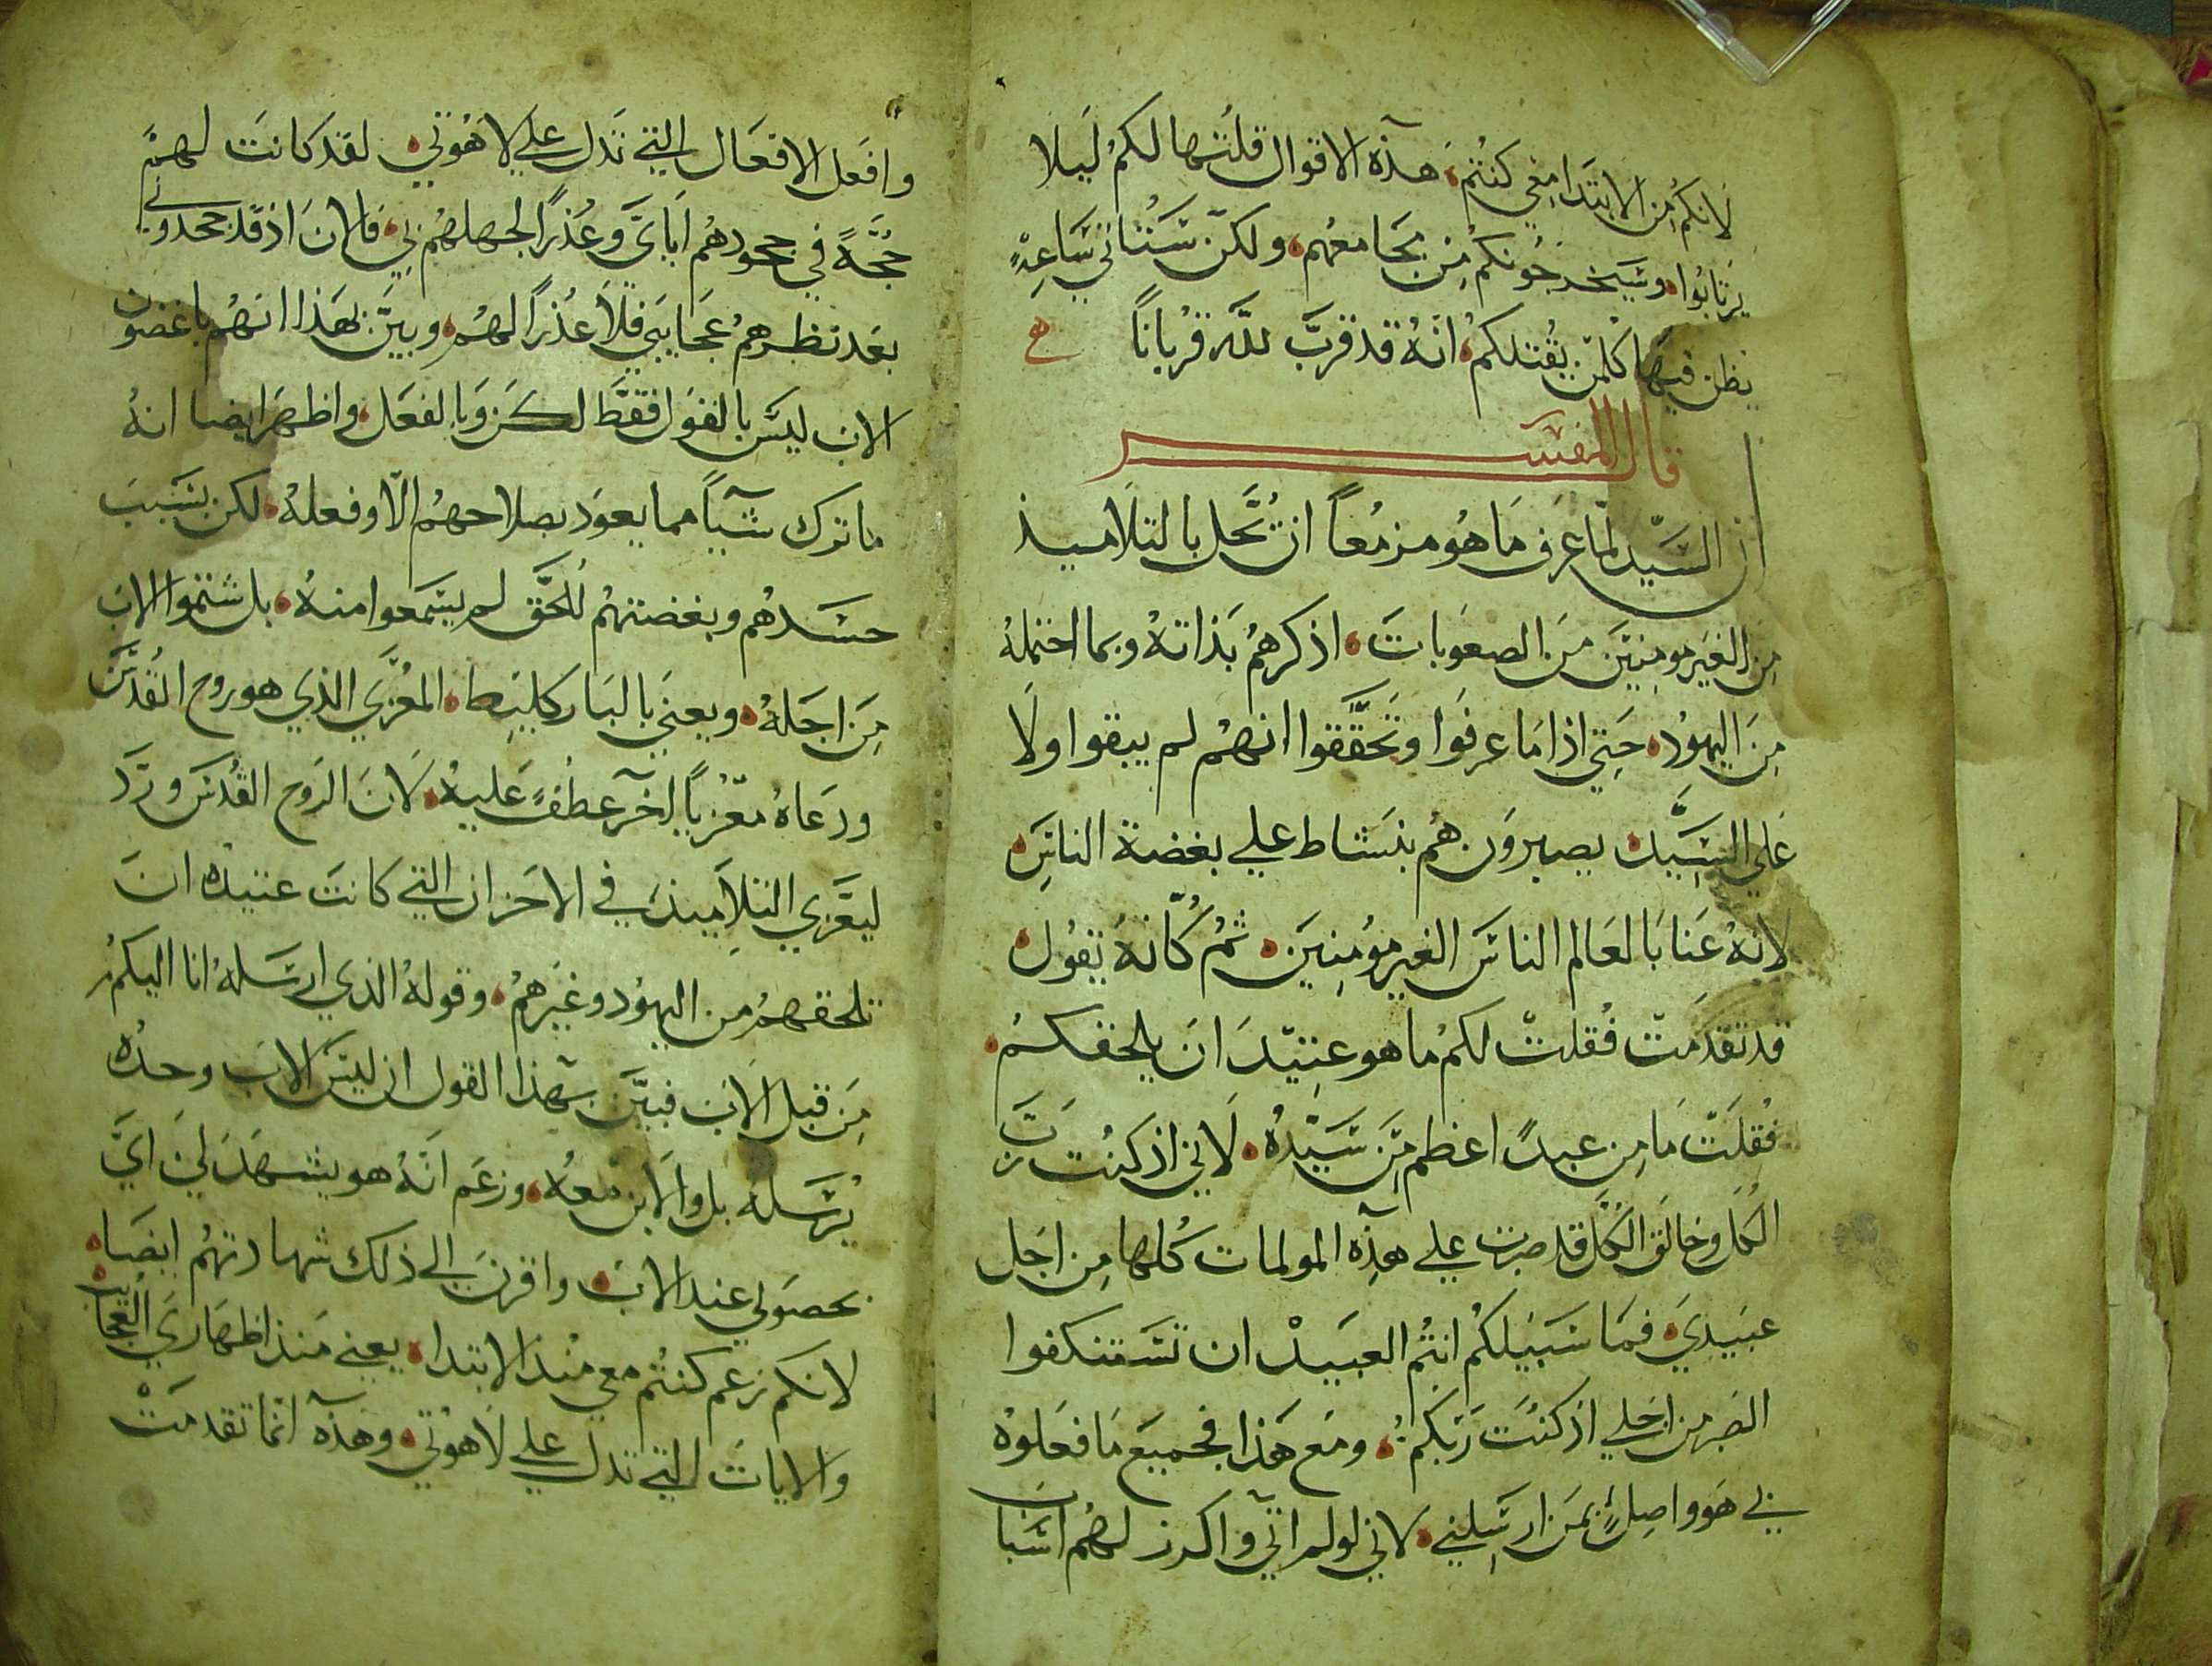 لانكم من الابتدا معي كنتم، هذه الاقوال قلتها لكم ليلا
يرتابوا، وسيخرجونكم من مجامعهم، ولكن ستاتي ساعة
يظن فيها كلمن يقتلكم، انه قد قرب لله قربانا
قال المفسر
ان السيد لما عرف ما هو مزمعا ان تحل بالتلاميذ
من الغير مومنين من الصعوبات، اذكرهم بذاته وبما احتمله
من اليهود، حتي اذا ما عرفوا وتحققوا انهم لم يبقوا ولا
علي السيد، يصبرون هم بنشاط علي بغضة الناس،
لانه عنا بالعالم الناس الغير مومنين، ثم كانه يقول،
قد تقدمت فقلت لكم ما هو عتيد ان يلحقكم،
فقلت ما من عبد اعظم من سيده، لاني اذ كنت رب
الكل وخالق الكل قد صبرت علي هذه المولمات كلها من اجل
عبيدي، فما سبيلكم انتم العبيد ان تستنكفوا
الصبر من اجلي اذ كنت ربكم، ومع هذا فجميع ما فعلوه
بي هو واصل بمن ارسلني، لاني لو لم اتي واكرز لهم اشبا
وافعل الافعال التي تدل علي لاهوتي، لقد كانت لهم
حجة في جحودهم اياي وعذرا لجهلهم بي، فالان اذ قد جحدوني
بعد نظرهم عجايبي فلا عذرا لهم، وبين بهذا انهم باغضون
الاب ليس بالقول فقط لكن وبالفعل، واظهر ايضا انه
ما ترك شيا مما يعود بصلاحهم الا وفعله، لكن بسبب
حسدهم وبغضتهم للحق لم يسمعوا منه، بل شتموا الاب
من اجله، ويعني بالباركليط، المعزي الذي هو روح القدس
ودعاه معزيا اخر عطف عليه، لان الروح القدس ورد
ليعزي التلاميذ في الاحزان التي كانت عتيده ان
تلحقهم من اليهود وغيرهم، وقوله الذي ارسله انا اليكم
من قبل الاب فبين بهذا القول ان ليس الاب وحده
يرسله بل والابن معه، وزعم انه هو يشهد لي اي
بحصولي عند الاب، واقرن الي ذلك شهادتهم ايضا،
لانكم زعم كنتم معي منذ الابتدا، يعني منذ اظهاري العجايب
والايات التي تدل علي لاهوتي، وهذه انما تقدمت